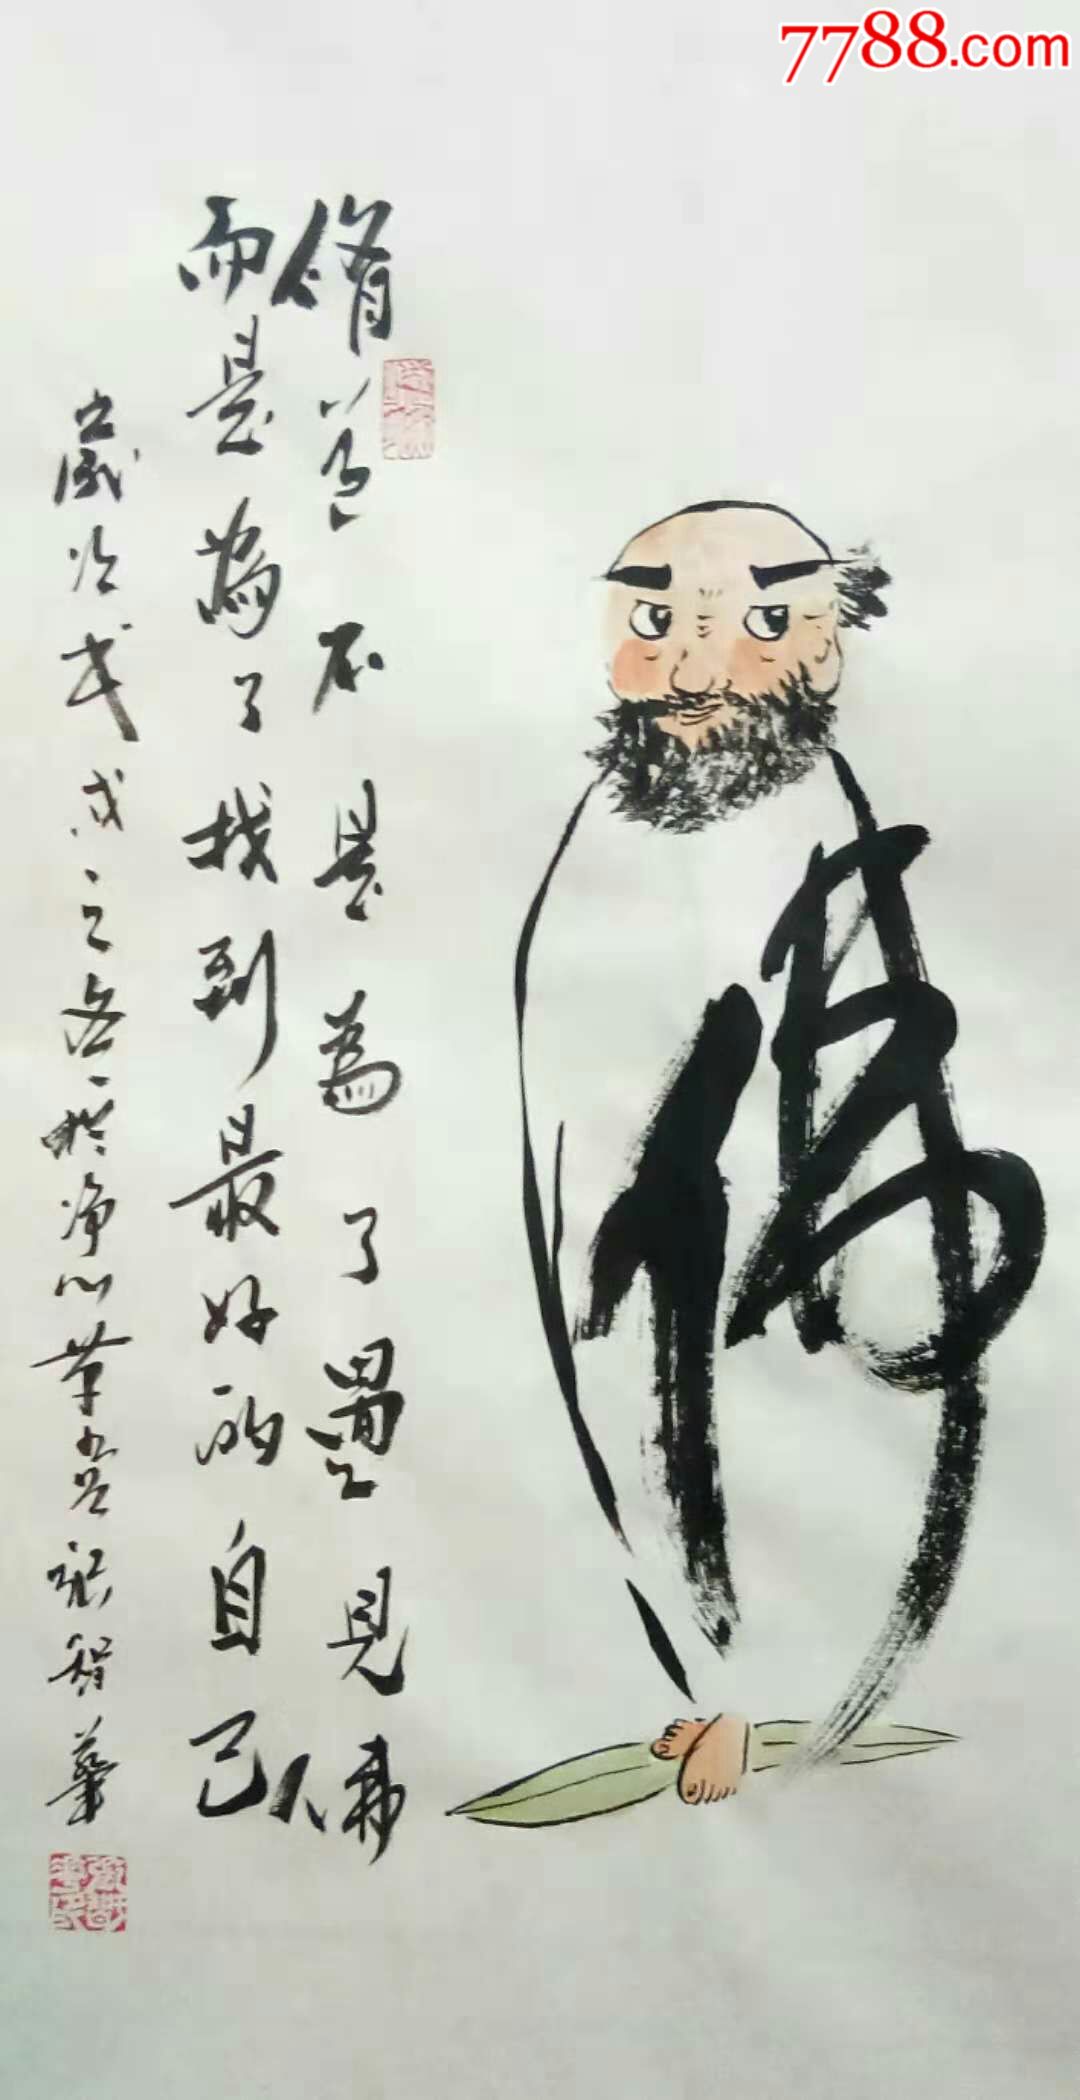 7788.com
佛
脩道不是為了遇見佛
而是為了找到最好的自己
歲次戊戌之冬於净心草堂張智華